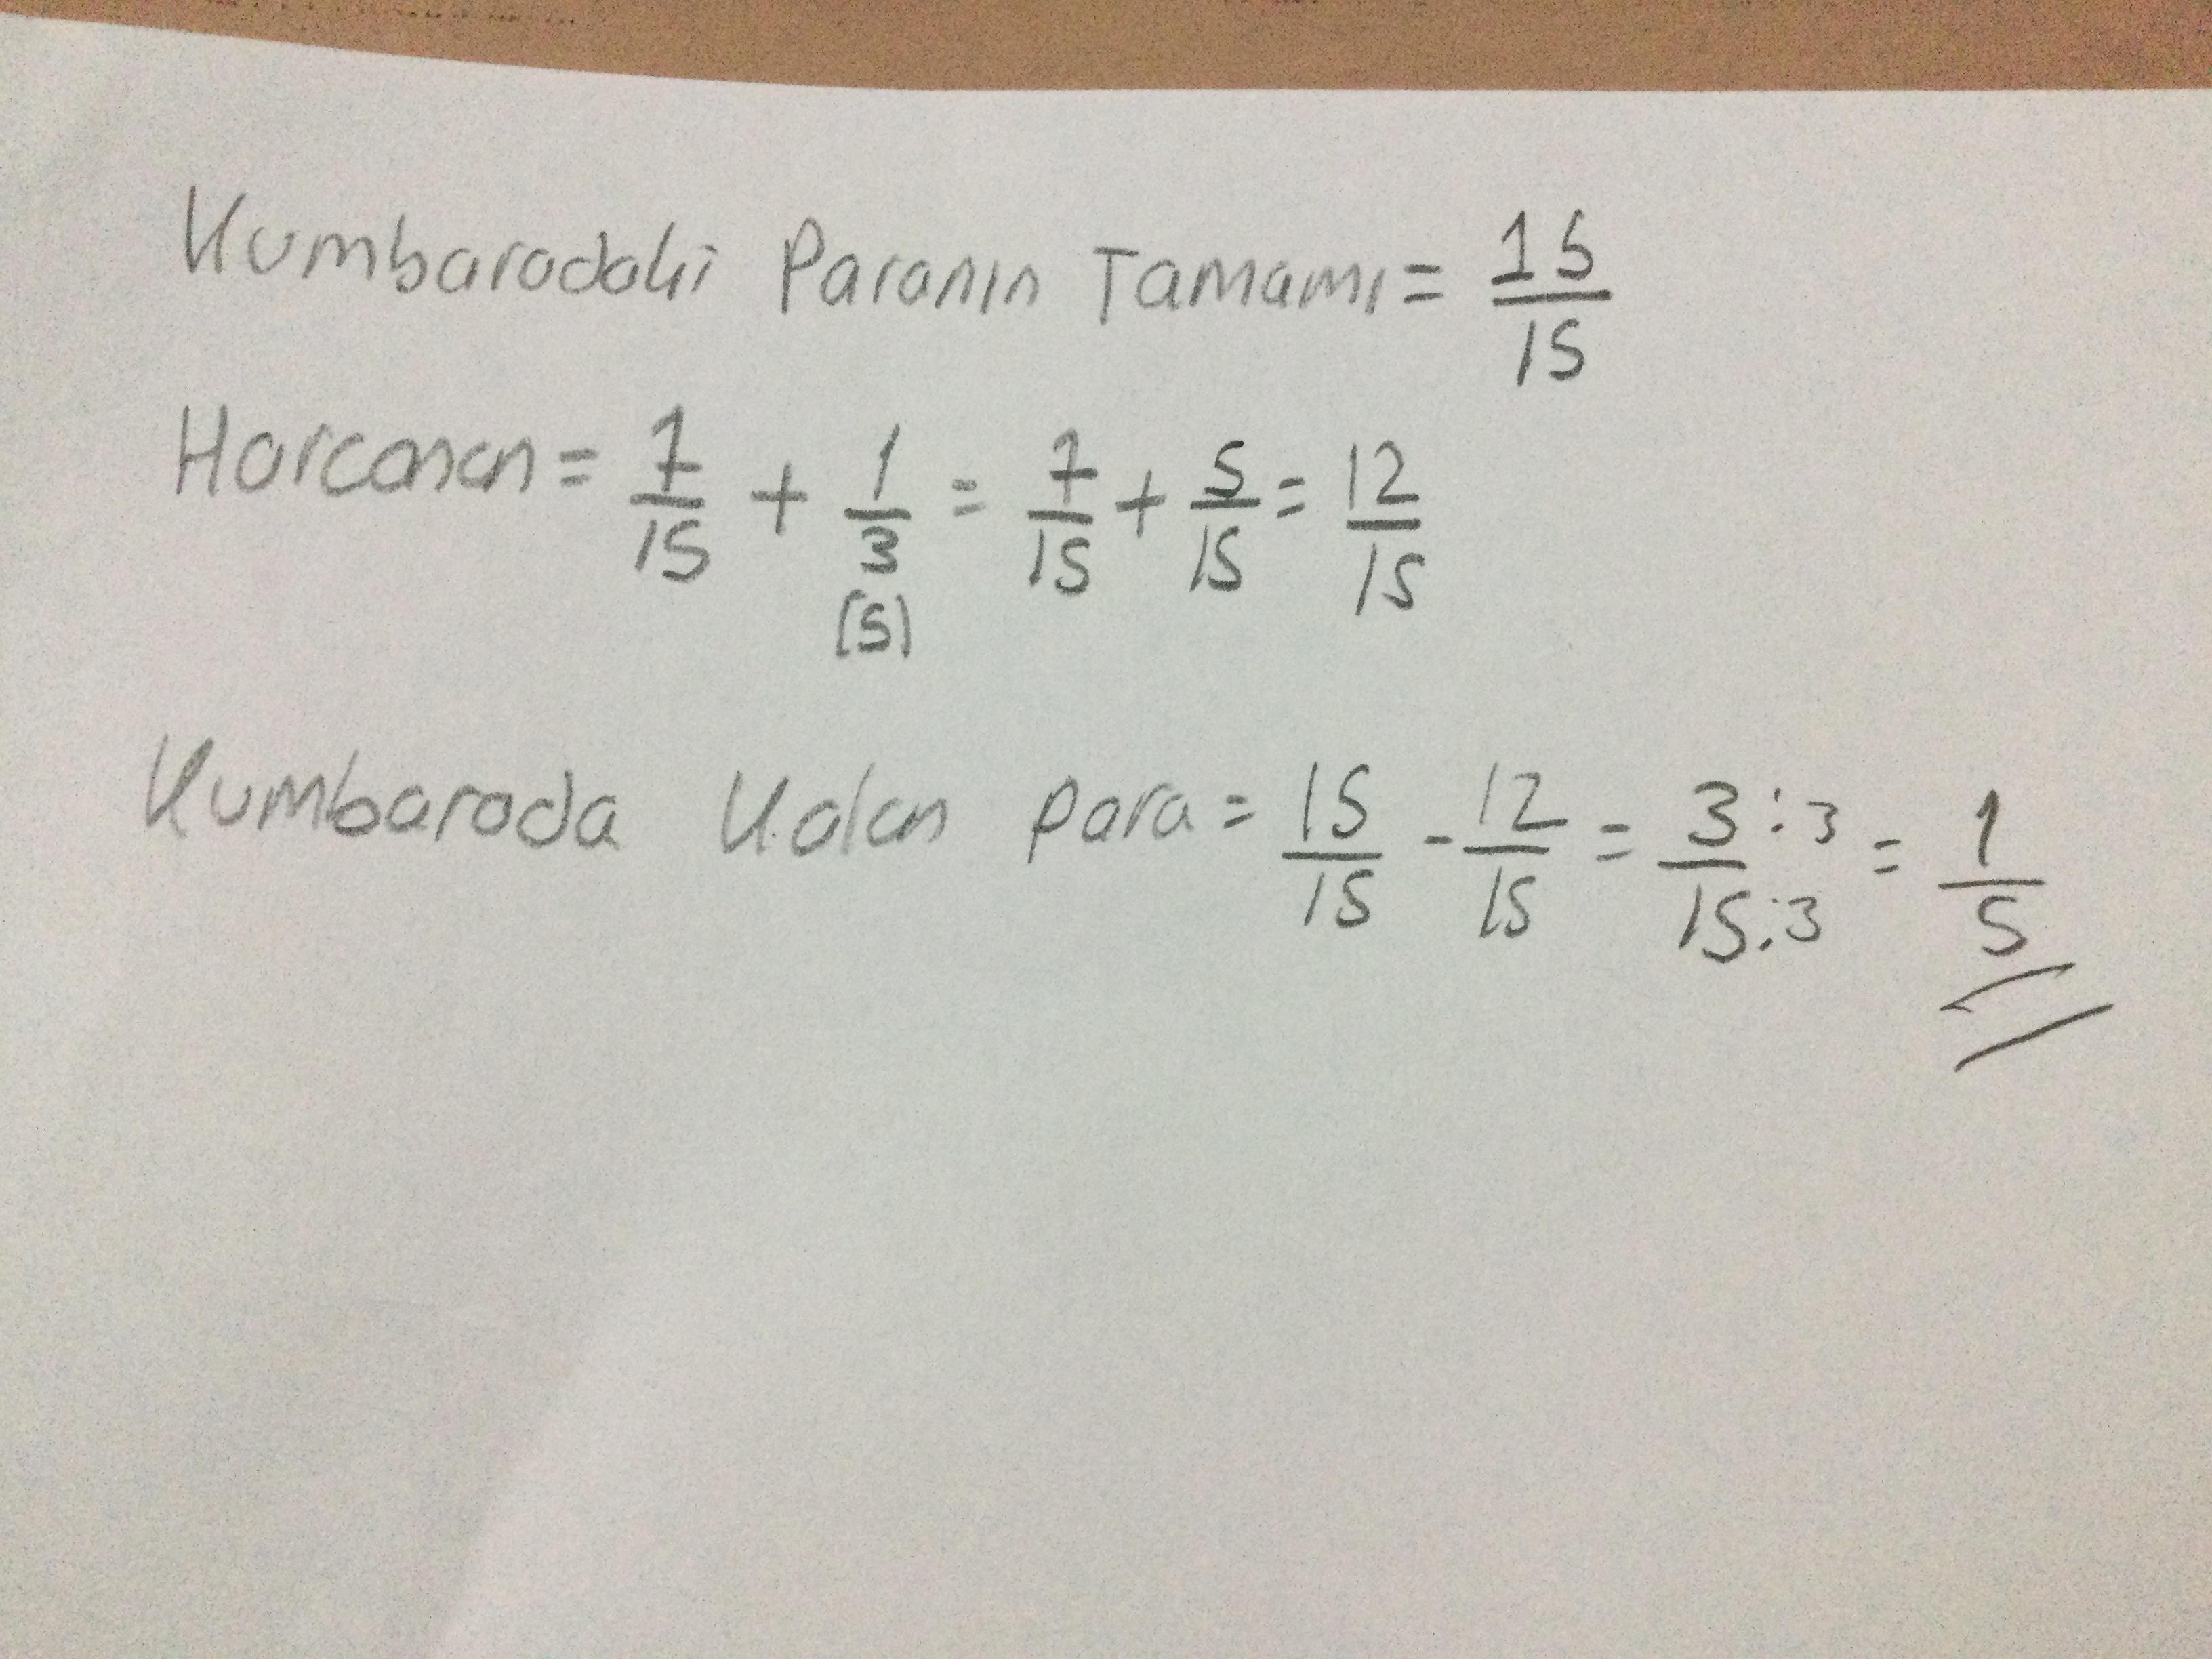 Kumbaradaki Paranın Tamamı = 15/15
Harcanan = 7/15 + 1/3 = 7/15 + 5/15 = 12/15
(5)
Kumbarada Kalan para = 15/15 - 12/15 = 3:3/15:3 = 1/5